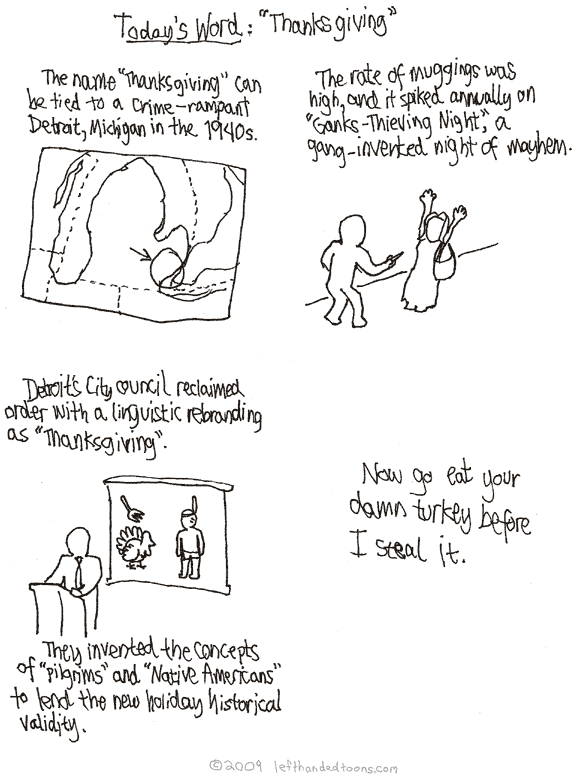 Today's Word: "Thanksgiving"
The name "Thanksgiving" can
be tied to a crime-rampant
Detroit, Michigan in the 1940s.
The rate of muggings was
high, and it spiked annually on
"Ganks-Thieving Night," a
gang-invented night of mayhem.
Detroit's City council reclaimed
order with a linguistic rebranding
as "Thanksgiving".
They invented the concepts
of "pilgrims" and "Native Americans"
to lend the new holiday historical
validity.
Now go eat your
damn turkey before
I steal it.
©2009 lefthandedtoons.com